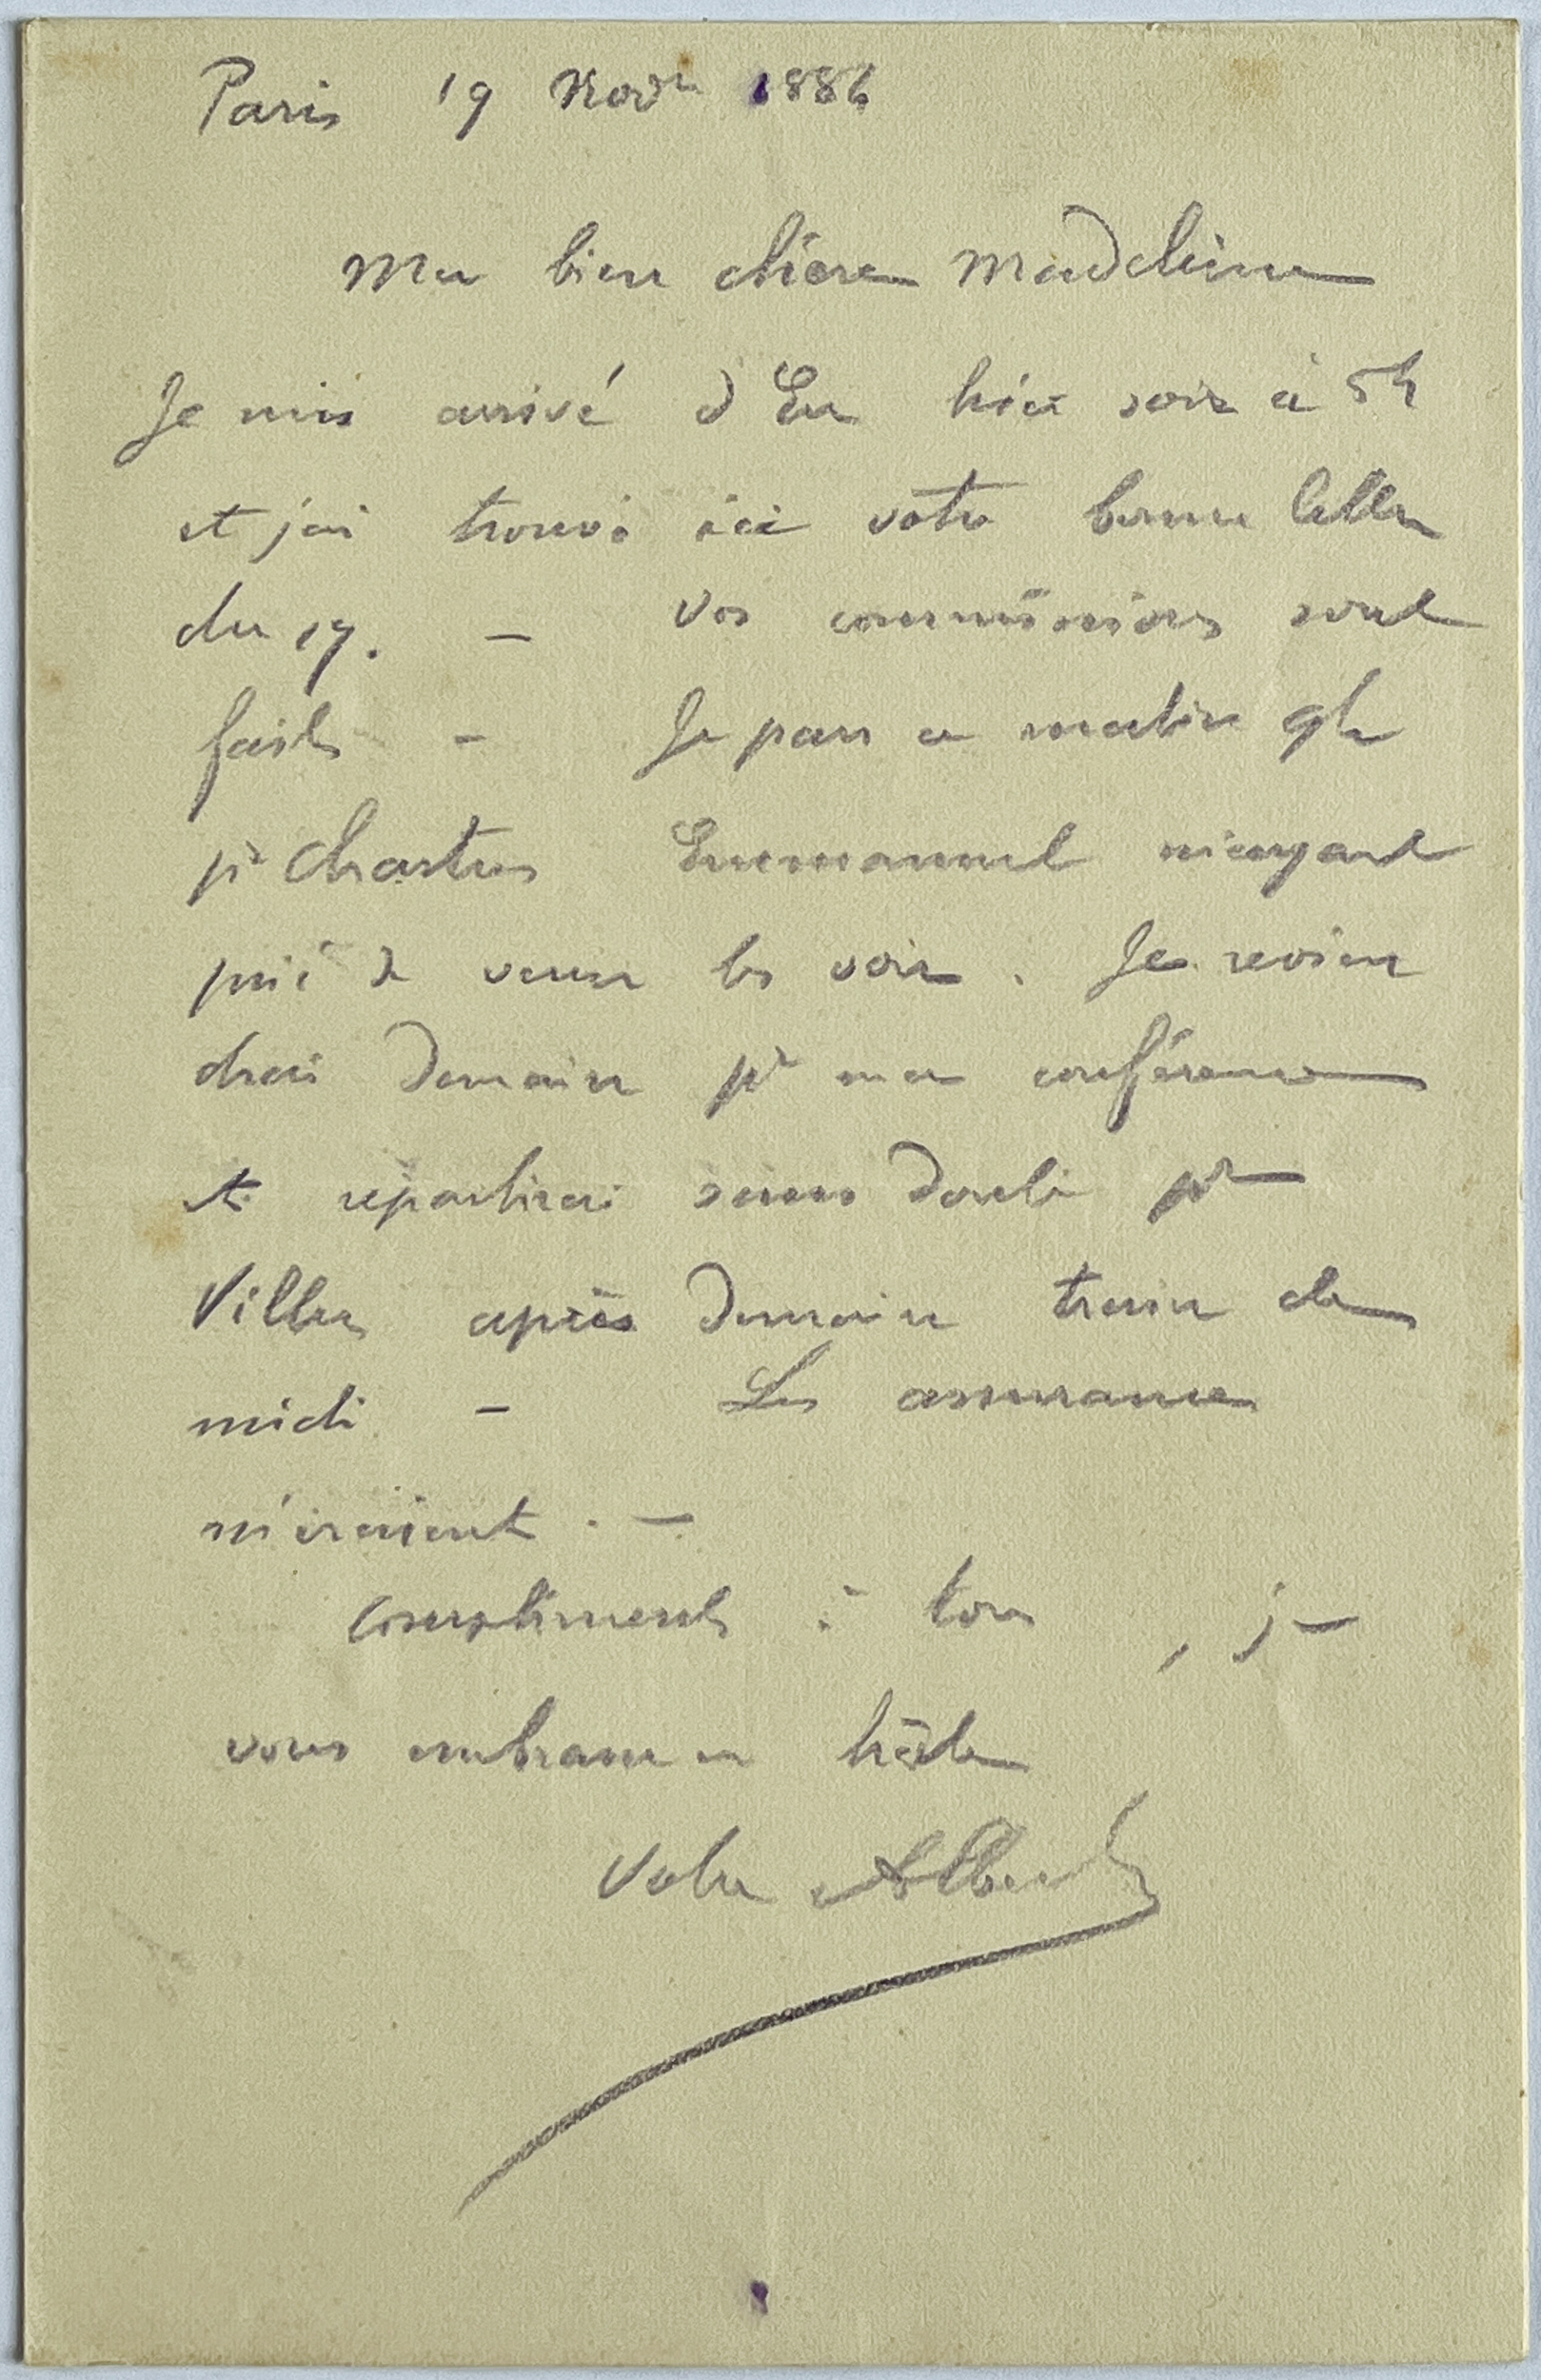 Paris 19 Nov^re 1886
Ma bien chère Madeleine
Je suis arrivé d'Eu hier soir à 5h
et j'ai trouvé ici votre bonne lettre
du 17. – Vos commissions sont
faites – Je pars ce matin 9h
p^r Chartres Emmanuel m'ayant
prié de venir les voir. Je revien
drai demain p^r ma conférence
et repartirai sans doute p^r
Villers après demain train de
midi – Les assurances
m'
Compliments à tous, je
vous embrasse en hâte
Votre Albert